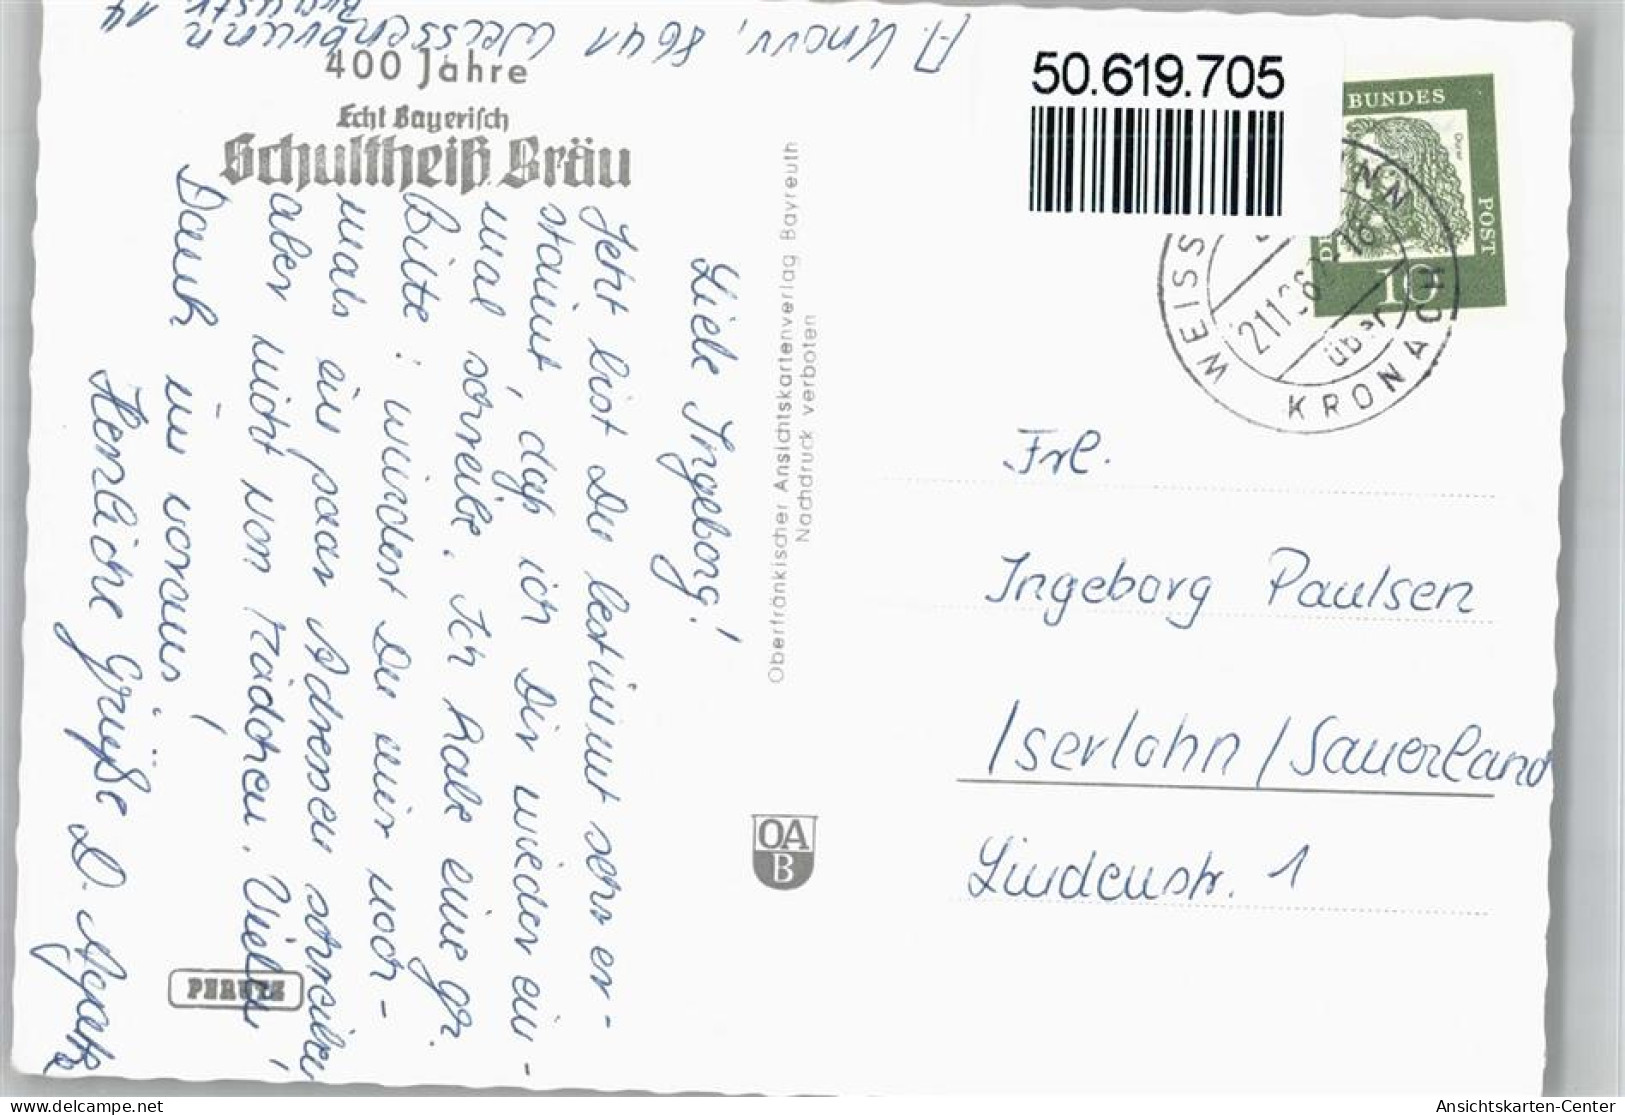 400 Jahre
Echt Bayerisch
Schultheiß Bräu
8641 Weissenbrunn
Braustr. 14
Liebe Ingeborg!
Jetzt bist Du bestimmt sehr er-
staunt, daß ich Dir wieder ein-
mal schreibe. Ich habe eine gr.
Bitte: würdest Du mir noch-
mals ein paar Adressen schreiben
aber nicht von Mädchen. Vielen
Dank im voraus!
Herzliche Grüße D. Agathe
PERUTZ
Oberfränkischer Ansichtskartenverlag Bayreuth
Nachdruck verboten
OA
B
50.619.705
BUNDES
POST
10
WEISS NN
21.11.6 -16
über
KRONACH
Frl.
Ingeborg Paulsen
Iserlohn / Sauerland
Lindenstr. 1
delcampe.net
Ansichtskarten-Center